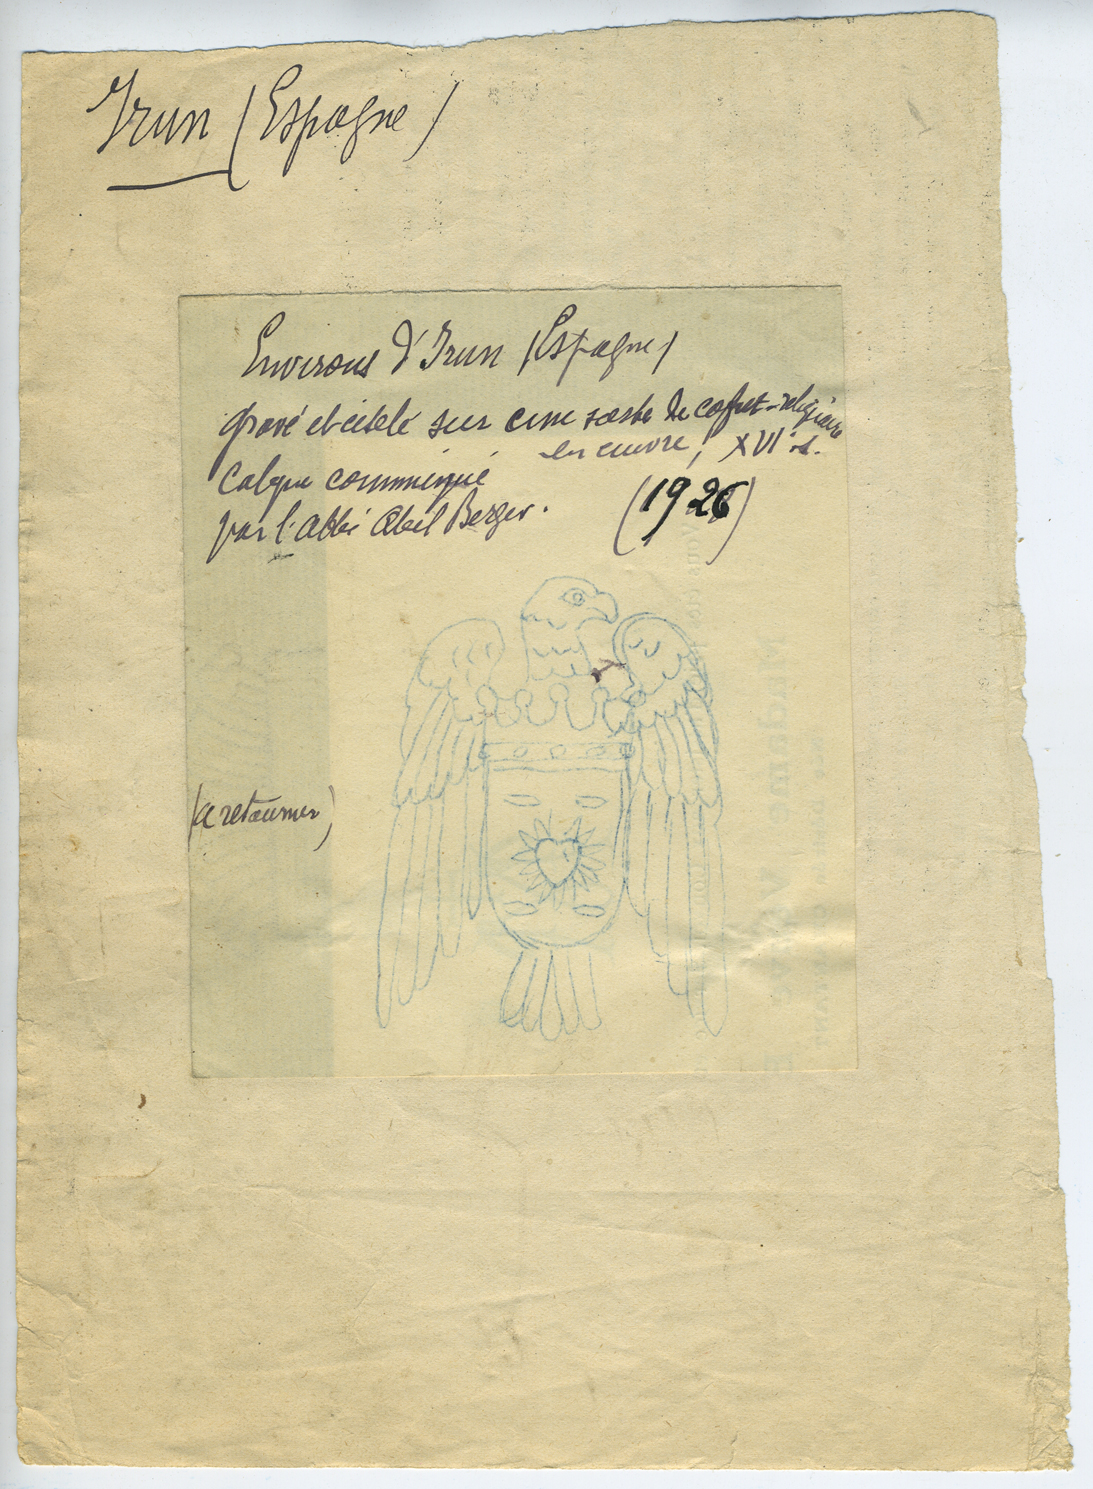 Irun (Espagne)
Environs d'Irun (Espagne)
gravé et ciselé sur une sorte de coffret-religieux
en cuivre, XVIe s.
Calque communiqué
par l'Abbé Abel Berger.
(1926)
(à retourner)
Madame V